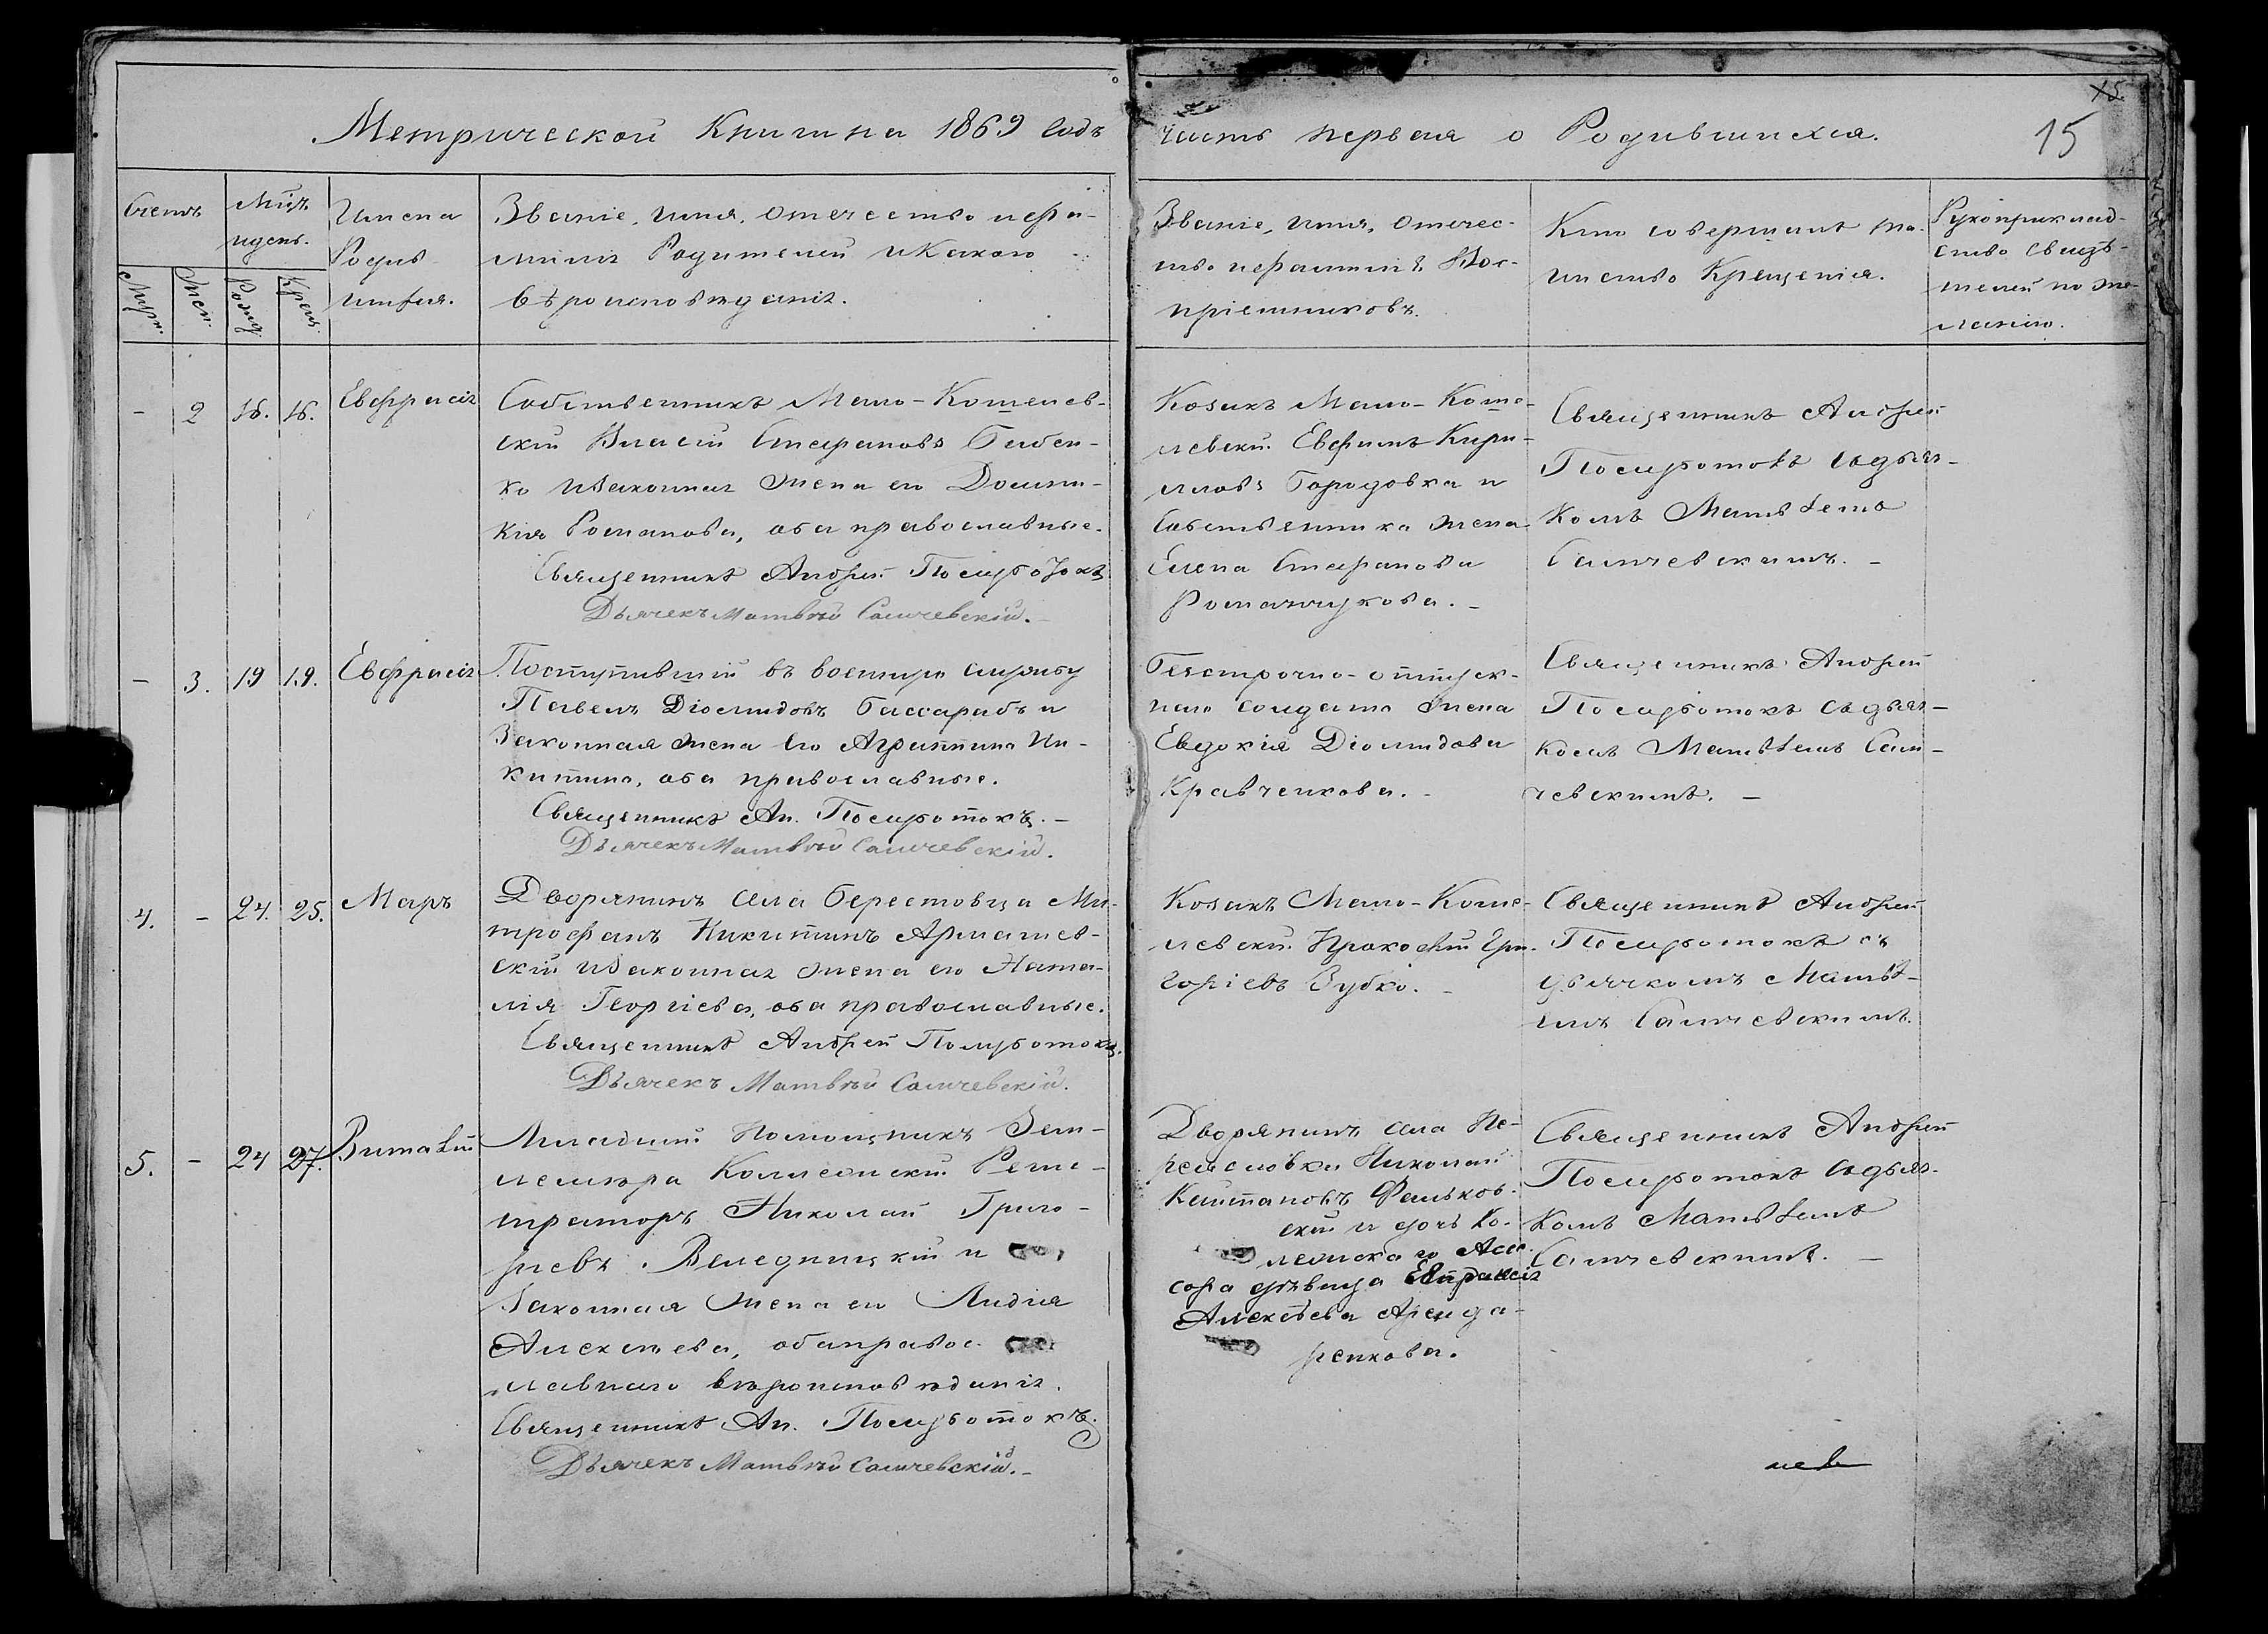 Метрической книги на 1869 годъ
часть первая о Родившихся.
15
15
Счетъ
Мужс.
Женс.
Мѣцъ
и день.
Рожд.
Крещ.
Имена
Родив-
шихся.
Званіе, имя, отечество и фа-
милія Родителей и какого
вѣроисповѣданія.
Званіе, имя, отечес-
тво и фамилія Вос-
пріемниковъ.
Кто совершалъ та-
инство Крещенія.
Рукоприклад-
ство свидѣ-
телей по же-
ланію.
-
2
16.
16.
Евфрасія
Собственникъ Мало-Кошелев-
скій Власій Стефановъ Бабен-
ко и законная жена его Домни-
кія Романова, оба православные.
Священникъ Андрей Полуботокъ
Дьячекъ Матвѣй Самчевскій.
Козакъ Мало-Коше-
левскій Евфимъ Кири-
лловъ Городовка и
Собственника жена
Елена Стефанова
Романчукова. -
Священникъ Андрей
Полуботокъ съ дьяч-
комъ Матвѣемъ
Самчевскимъ. -
-
3.
19
19.
Евфрасія
Поступившій въ военную службу
Павелъ Діомидовъ Бассарабъ и
Законная жена его Агриппина Ни-
китина, оба православные.
Священникъ Ан. Полуботокъ. -
Дьячекъ Матвѣй Самчевскій.
Безсрочно-отпуск-
наго солдата жена
Евдокія Діомидова
Кравченкова. -
Священникъ Андрей
Полуботокъ съ дьяч-
комъ Матвѣемъ Сам-
чевскимъ. -
4.
-
24.
25.
Маръ
Дворянинъ села Берестовца Ми-
трофанъ Никитинъ Армашев-
скій и законная жена его Ната-
лія Георгіева, оба православные.
Священникъ Андрей Полуботокъ.
Дьячекъ Матвѣй Самчевскій.
Козакъ Мало-Коше-
левскій Прокофій Гри-
горіевъ Зубко. -
Священникъ Андрей
Полуботокъ съ
дьячкомъ Матвѣ-
емъ Самчевскимъ.
5.
-
24
27.
Виталій
Младшій Помощникъ Зем-
лемѣра Коллежскій Реги-
страторъ Николай Григо-
рьевъ Веледницкій и
Законная жена его Лидія
Алексѣева, оба правос-
лавнаго вѣроисповѣданія.
Священникъ Ан. Полуботокъ.
Дьячекъ Матвѣй Самчевскій. -
Дворянинъ села Пе-
реясловки Николай
Капитановъ Фальков-
скій и дочь Ко-
лежскаго Ассе-
сора дѣвица Евпраксія
Алексѣева Аренда-
ренкова.
Священникъ Андрей
Полуботокъ съ дьяч-
комъ Матвѣемъ
Самчевскимъ. -